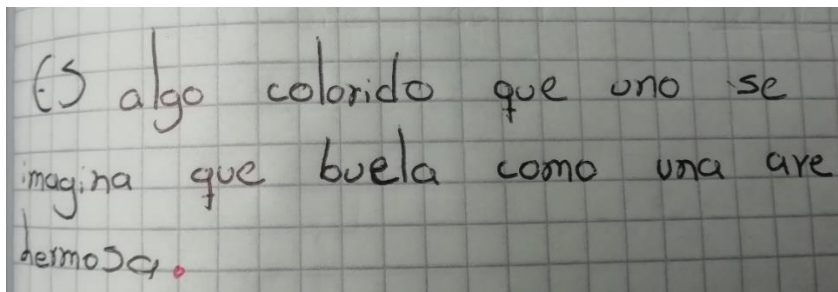 Es algo colorido que uno se
imagina que buela como una ave
hermosa.